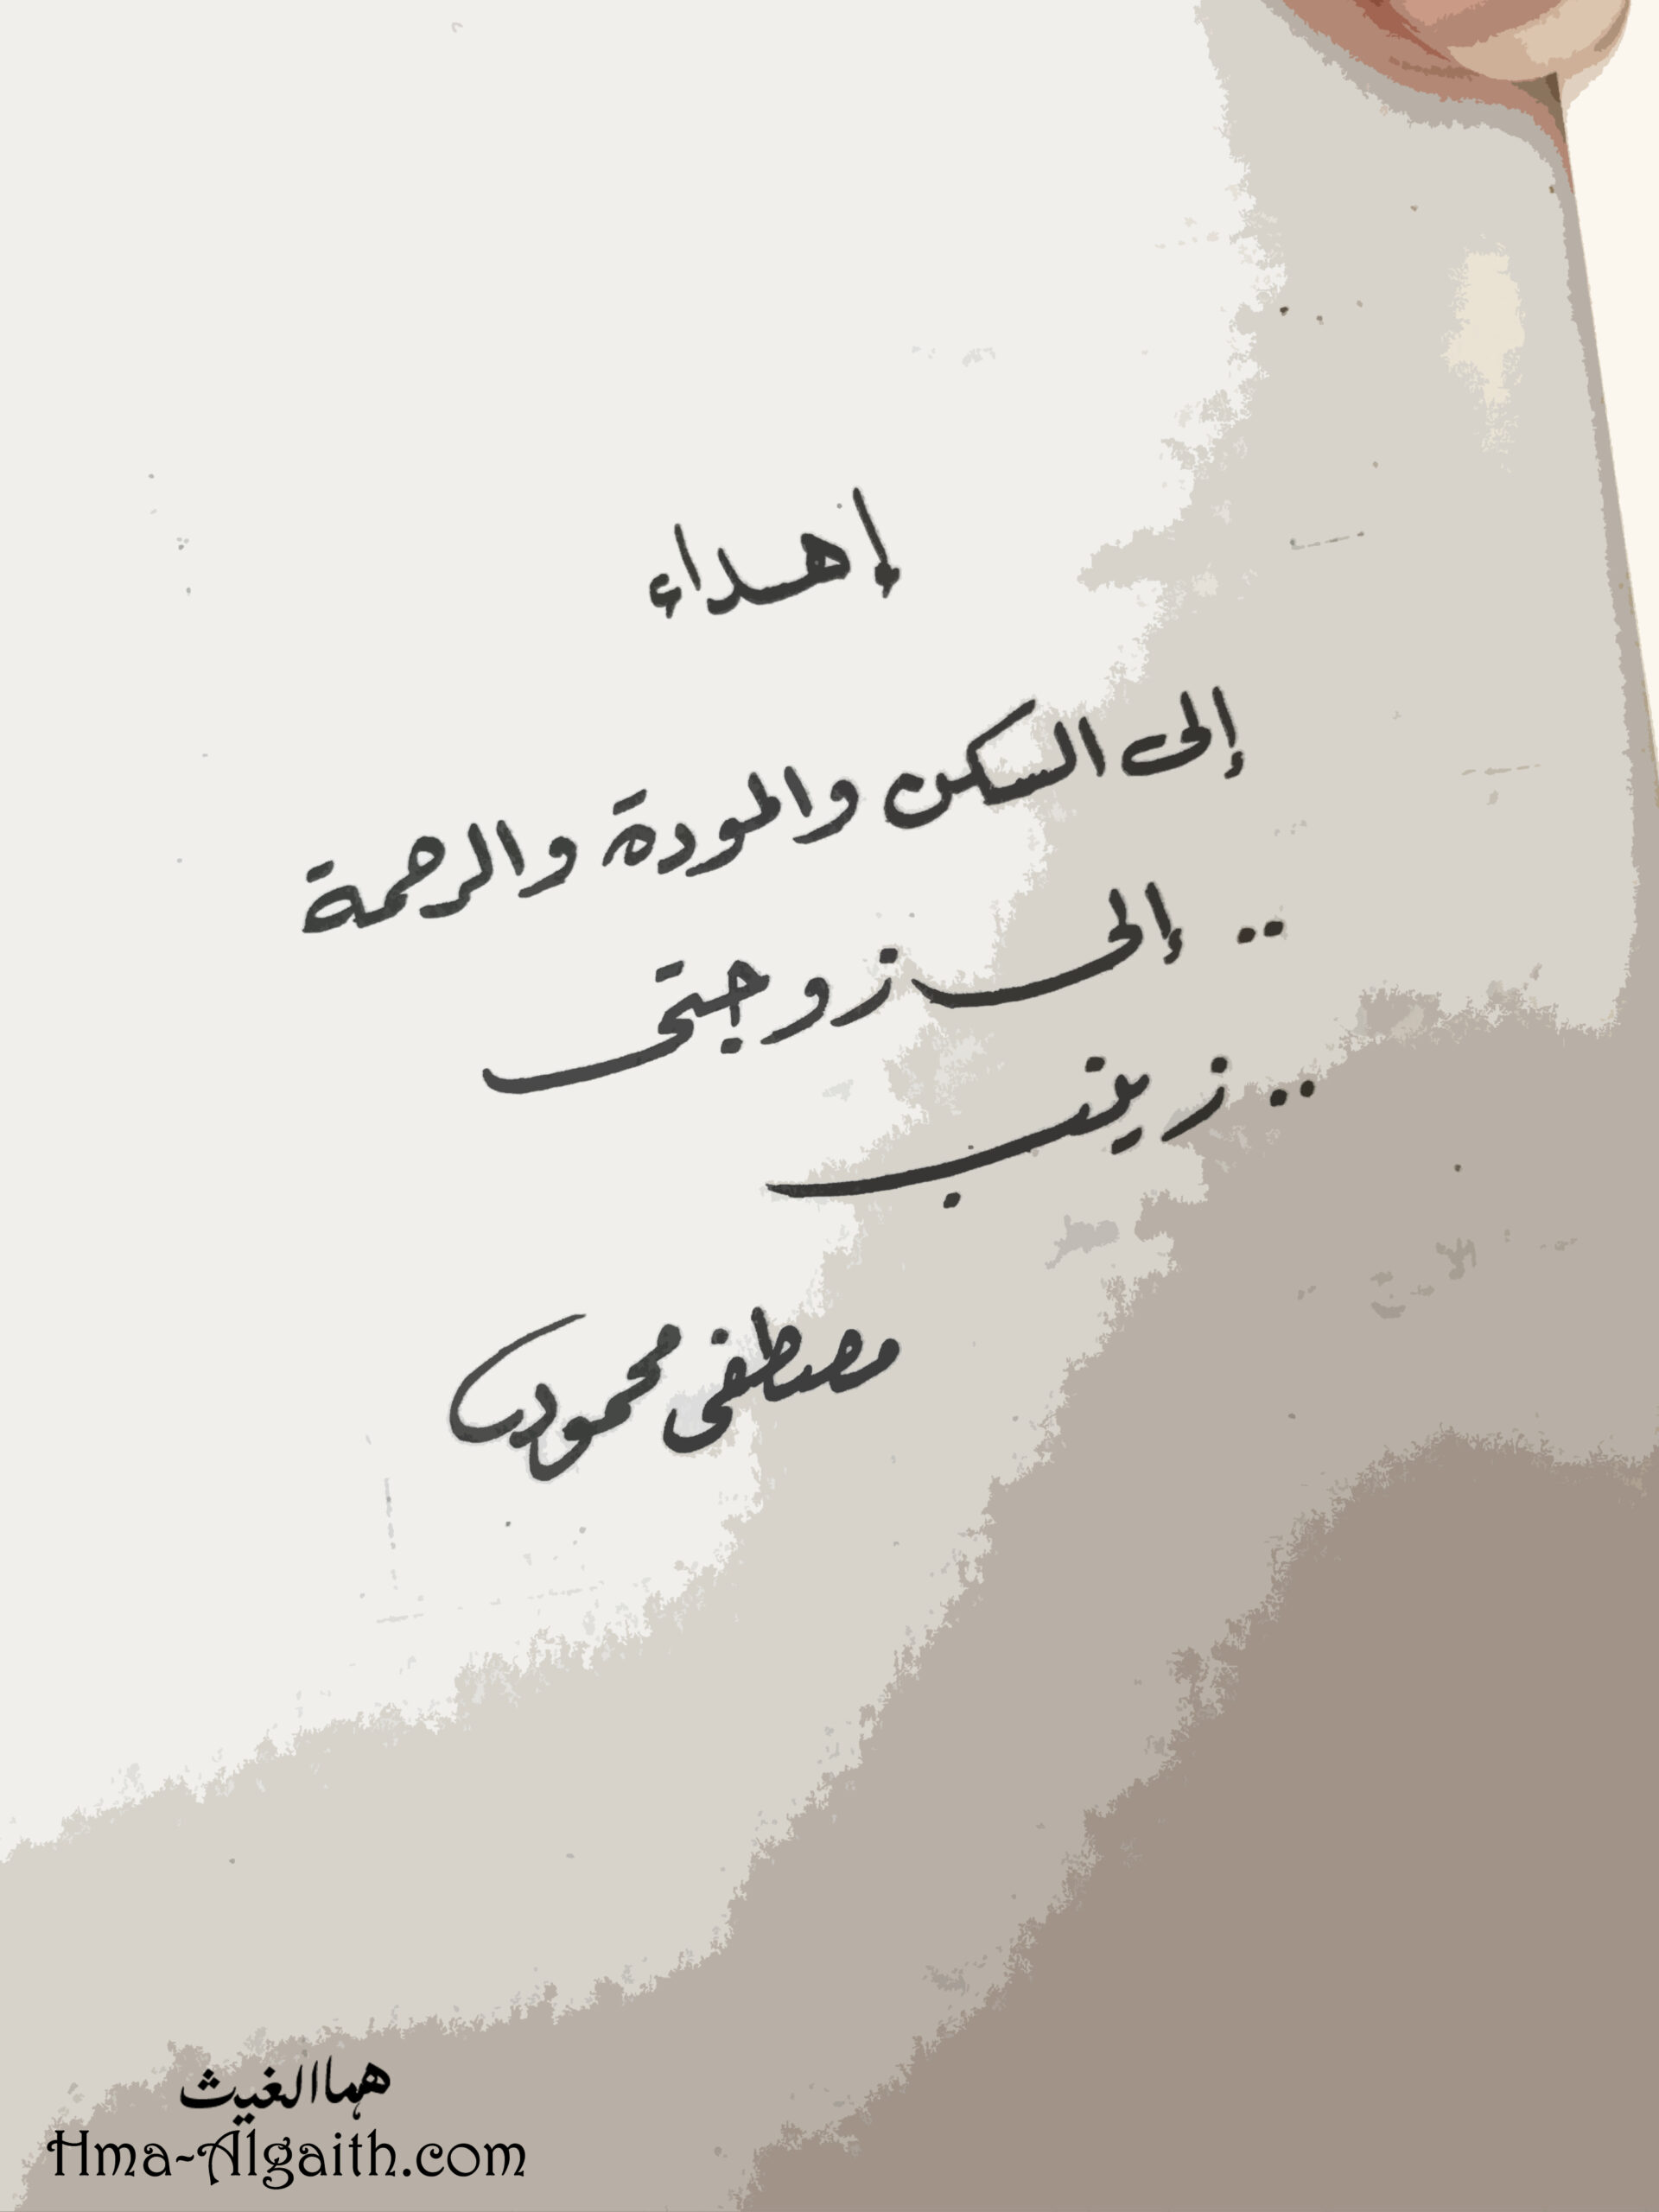 إهداء
إلى السكن والمودة والرحمة
.. إلى زوجتى
.. زينب
مصطفى محمود
هما الغيث
Hma~Algaith.com